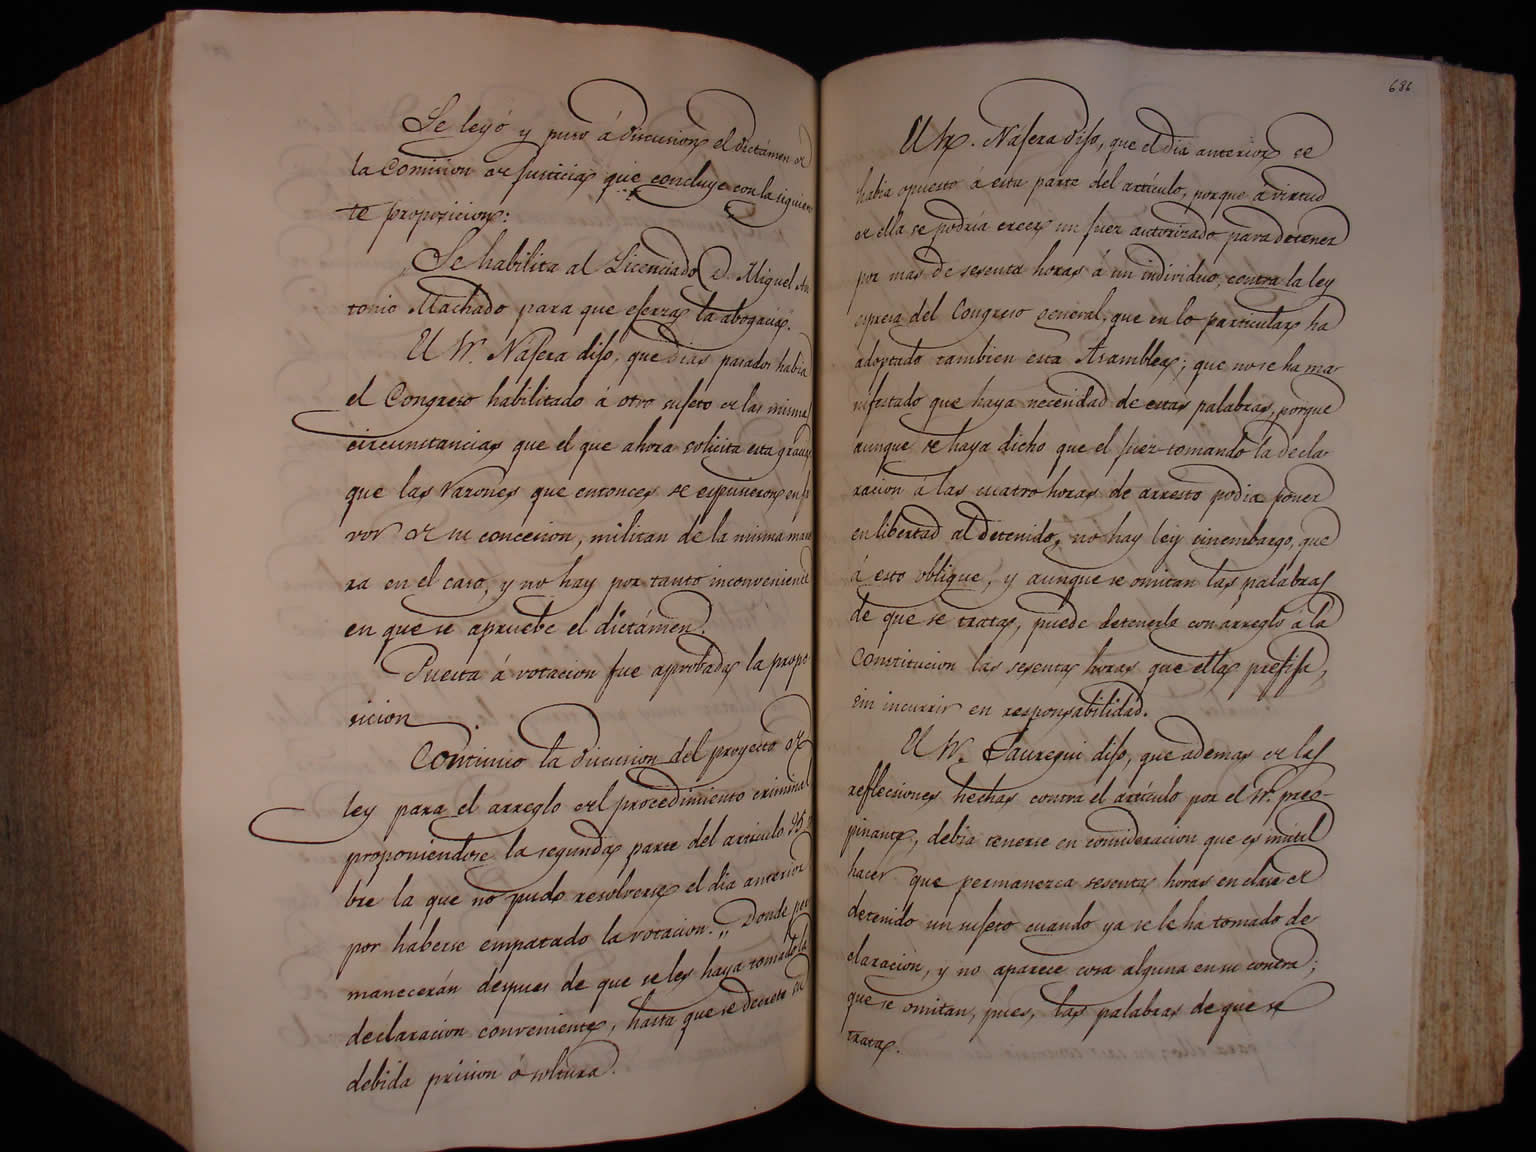 Se leyó y puso á discusion el dictámen de
la Comision de Justicia que concluye con la siguien
te proposicion:
Se habilita al Licenciado D. Miguel An
tonio Machado para que ejerza la abogacia.
El Sr. Najera dijo, que dias pasados habia
el Congreso habilitado á otro sujeto de las mismas
circunstancias que el que ahora solicita esta gracia,
que las razones que entonces se espusieron en fa
vor de su concesion, militan de la misma mane
ra en el caso, y no hay por tanto inconveniente
en que se apruebe el dictámen.
Puesta á votacion fue aprobada la propo
sicion.
Continuó la discusion del proyecto de
ley para el arreglo del procedimiento criminal
proponiendose la segunda parte del articulo 95
bre la que no pudo resolverse el dia anterior
por haberse empatado la votacion. „ Donde per
manecerán despues de que se les haya tomado la
declaracion conveniente, hasta que se decrete su
debida prision ó soltura.
686
El Sr. Najera dijo, que el dia anterior se
habia opuesto á esta parte del artículo, porque á virtud
de ella se podria creer un juez autorizado para detener
por mas de sesenta horas á un individuo, contra la ley
espresa del Congreso general, que en lo particular ha
adoptado tambien esta Asamblea; que no se ha ma
nifestado que haya necesidad de estas palabras, porque
aunque se haya dicho que el juez tomando la decla-
racion á las cuatro horas de arresto podia poner
en libertad al detenido, no hay ley sinembargo, que
á esto obligue, y aunque se omitan las palabras
de que se trata, puede detenerla con arreglo á la
Constitucion las sesenta horas que ella prefija,
sin incurrir en responsabilidad.
El Sr. Jauregui dijo, que ademas de las
reflecsiones hechas contra el artículo por el Sr. preo-
pinante, debia tenerse en consideracion que es inutil
hacer que permanezca sesenta horas en clase de
detenido un sujeto cuando ya se le ha tomado de
claracion, y no aparece cosa alguna en su contra;
que se omitan, pues, las palabras de que se
trata.